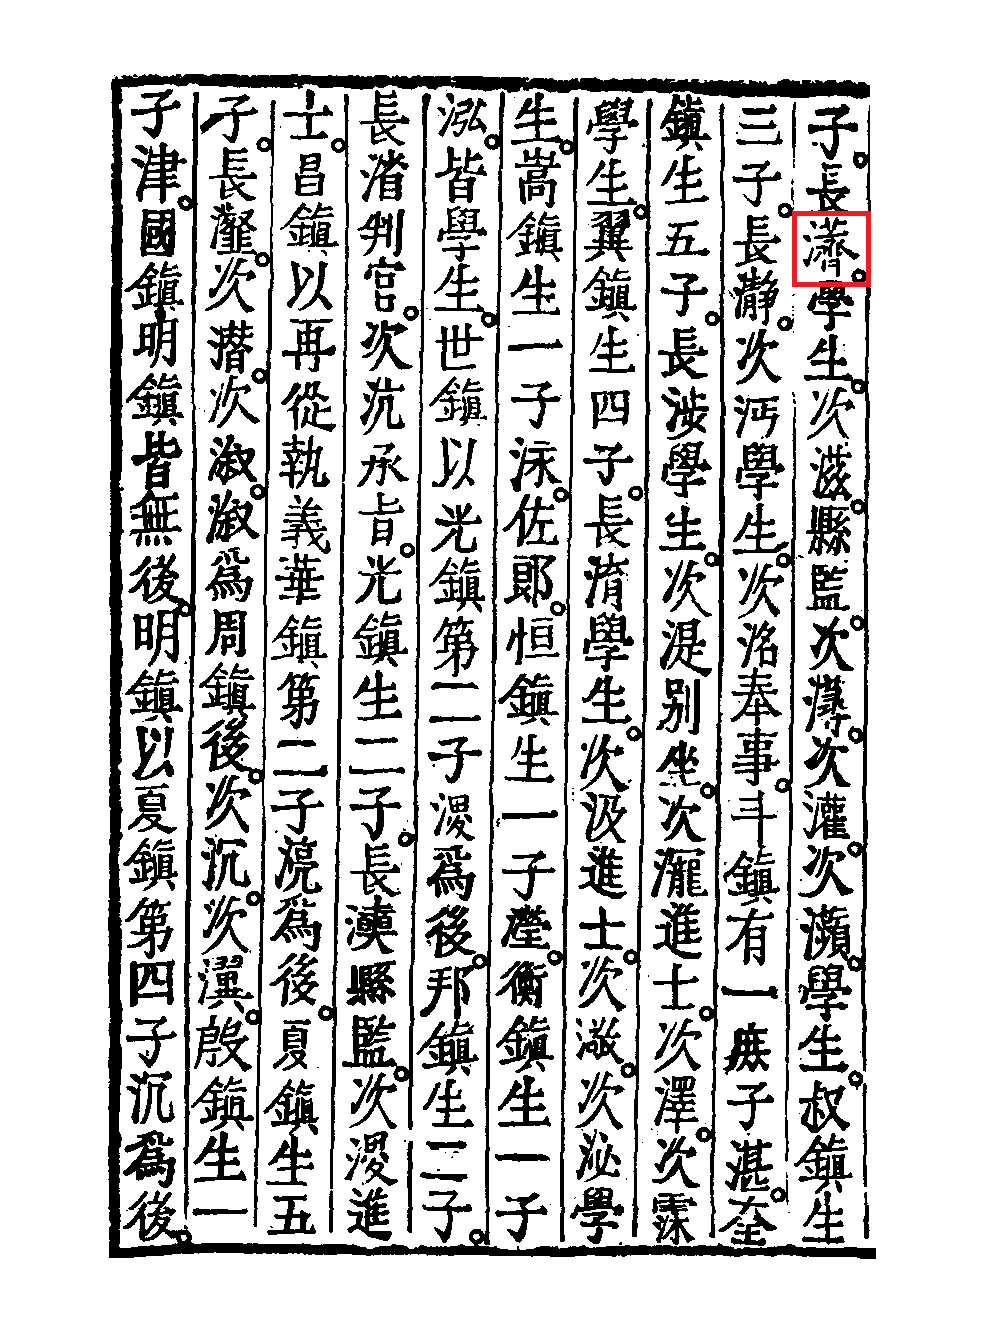 子長濟學生次滋縣監次溥次灌次瀕學生叔鎮生
三子長瀞次沔學生次洺奉事斗鎮有一庶子湛奎
鎮生五子長涉學生次湜别坐次瀧進士次澤次霂
學生翼鎮生四子長淯學生次汲進士次滋次泌學
生嵩鎮生一子泳佐郎恒鎮生一子瀅衡鎮生一子
泓皆學生世鎮以光鎮第二子渡為後邦鎮生二子
長渻判官次沆承旨光鎮生二子長漢縣監次渡進
士昌鎮以再從執義華鎮第二子涀為後夏鎮生五
子長灐次潜次淑淑為周鎮後次沉次潩殷鎮生一
子津國鎮明鎮皆無後明鎮以夏鎮第四子沉為後